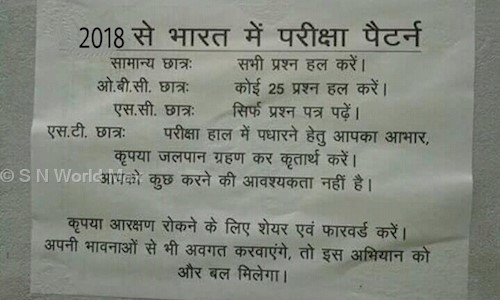 2018 से भारत में परीक्षा पैटर्न
सामान्य छात्रः सभी प्रश्न हल करें।
ओ.बी.सी. छात्रः कोई 25 प्रश्न हल करें।
एस.सी. छात्रः सिर्फ प्रश्न पत्र पढ़ें।
एस.टी. छात्रः परीक्षा हाल में पधारने हेतु आपका आभार,
कृपया जलपान ग्रहण कर कृतार्थ करें।
© S N World
आपको कुछ करने की आवश्यकता नहीं है।
कृपया आरक्षण रोकने के लिए शेयर एवं फारवर्ड करें।
अपनी भावनाओं से भी अवगत करवाएंगे, तो इस अभियान को
और बल मिलेगा।